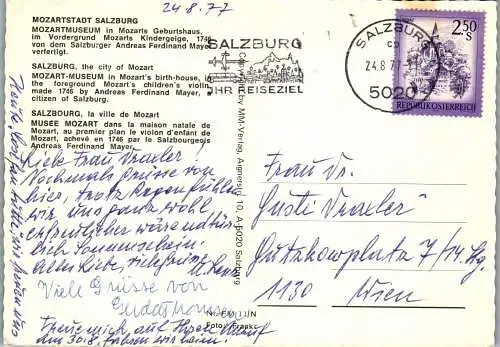 24.8.77
MOZARTSTADT SALZBURG
MOZARTMUSEUM in Mozarts Geburtshaus,
im Vordergrund Mozarts Kindergeige, 1746
von dem Salzburger Andreas Ferdinand Mayer
verfertigt.
SALZBURG, the city of Mozart
MOZART-MUSEUM in Mozart's birth-house, in
the foreground Mozart's children's violin,
made 1746 by Andreas Ferdinand Mayer,
citizen of Salzburg.
SALZBOURG, la ville de Mozart
MUSEE MOZART dans la maison natale de
Mozart, au premier plan le violon d'enfant de
Mozart, achevé en 1746 par le Salzbourgeois
Andreas Ferdinand Mayer.
SALZBURG
IHR REISEZIEL
SALZBURG
24.8.77
5020
2.50
S
REPUBLIK ÖSTERREICH
Copyright by MM-Verlag, Aignerstr. 10, A-5020 Salzburg
Liebe Frau Draxler!
Nochmals Grüsse von
hier, trotz Regen fühlen
wir uns ganz wohl,
erfreulicher wäre natür-
lich Sonnenschein.
Alles Liebe,
Viele Grüsse von
Freue mich auf Ihren Anruf
am 30.8. fahren wir heim.
Frau Dr.
Gusti Draxler
Gutzkowplatz 7/14. Stg.
1130 Wien
Foto: Frank